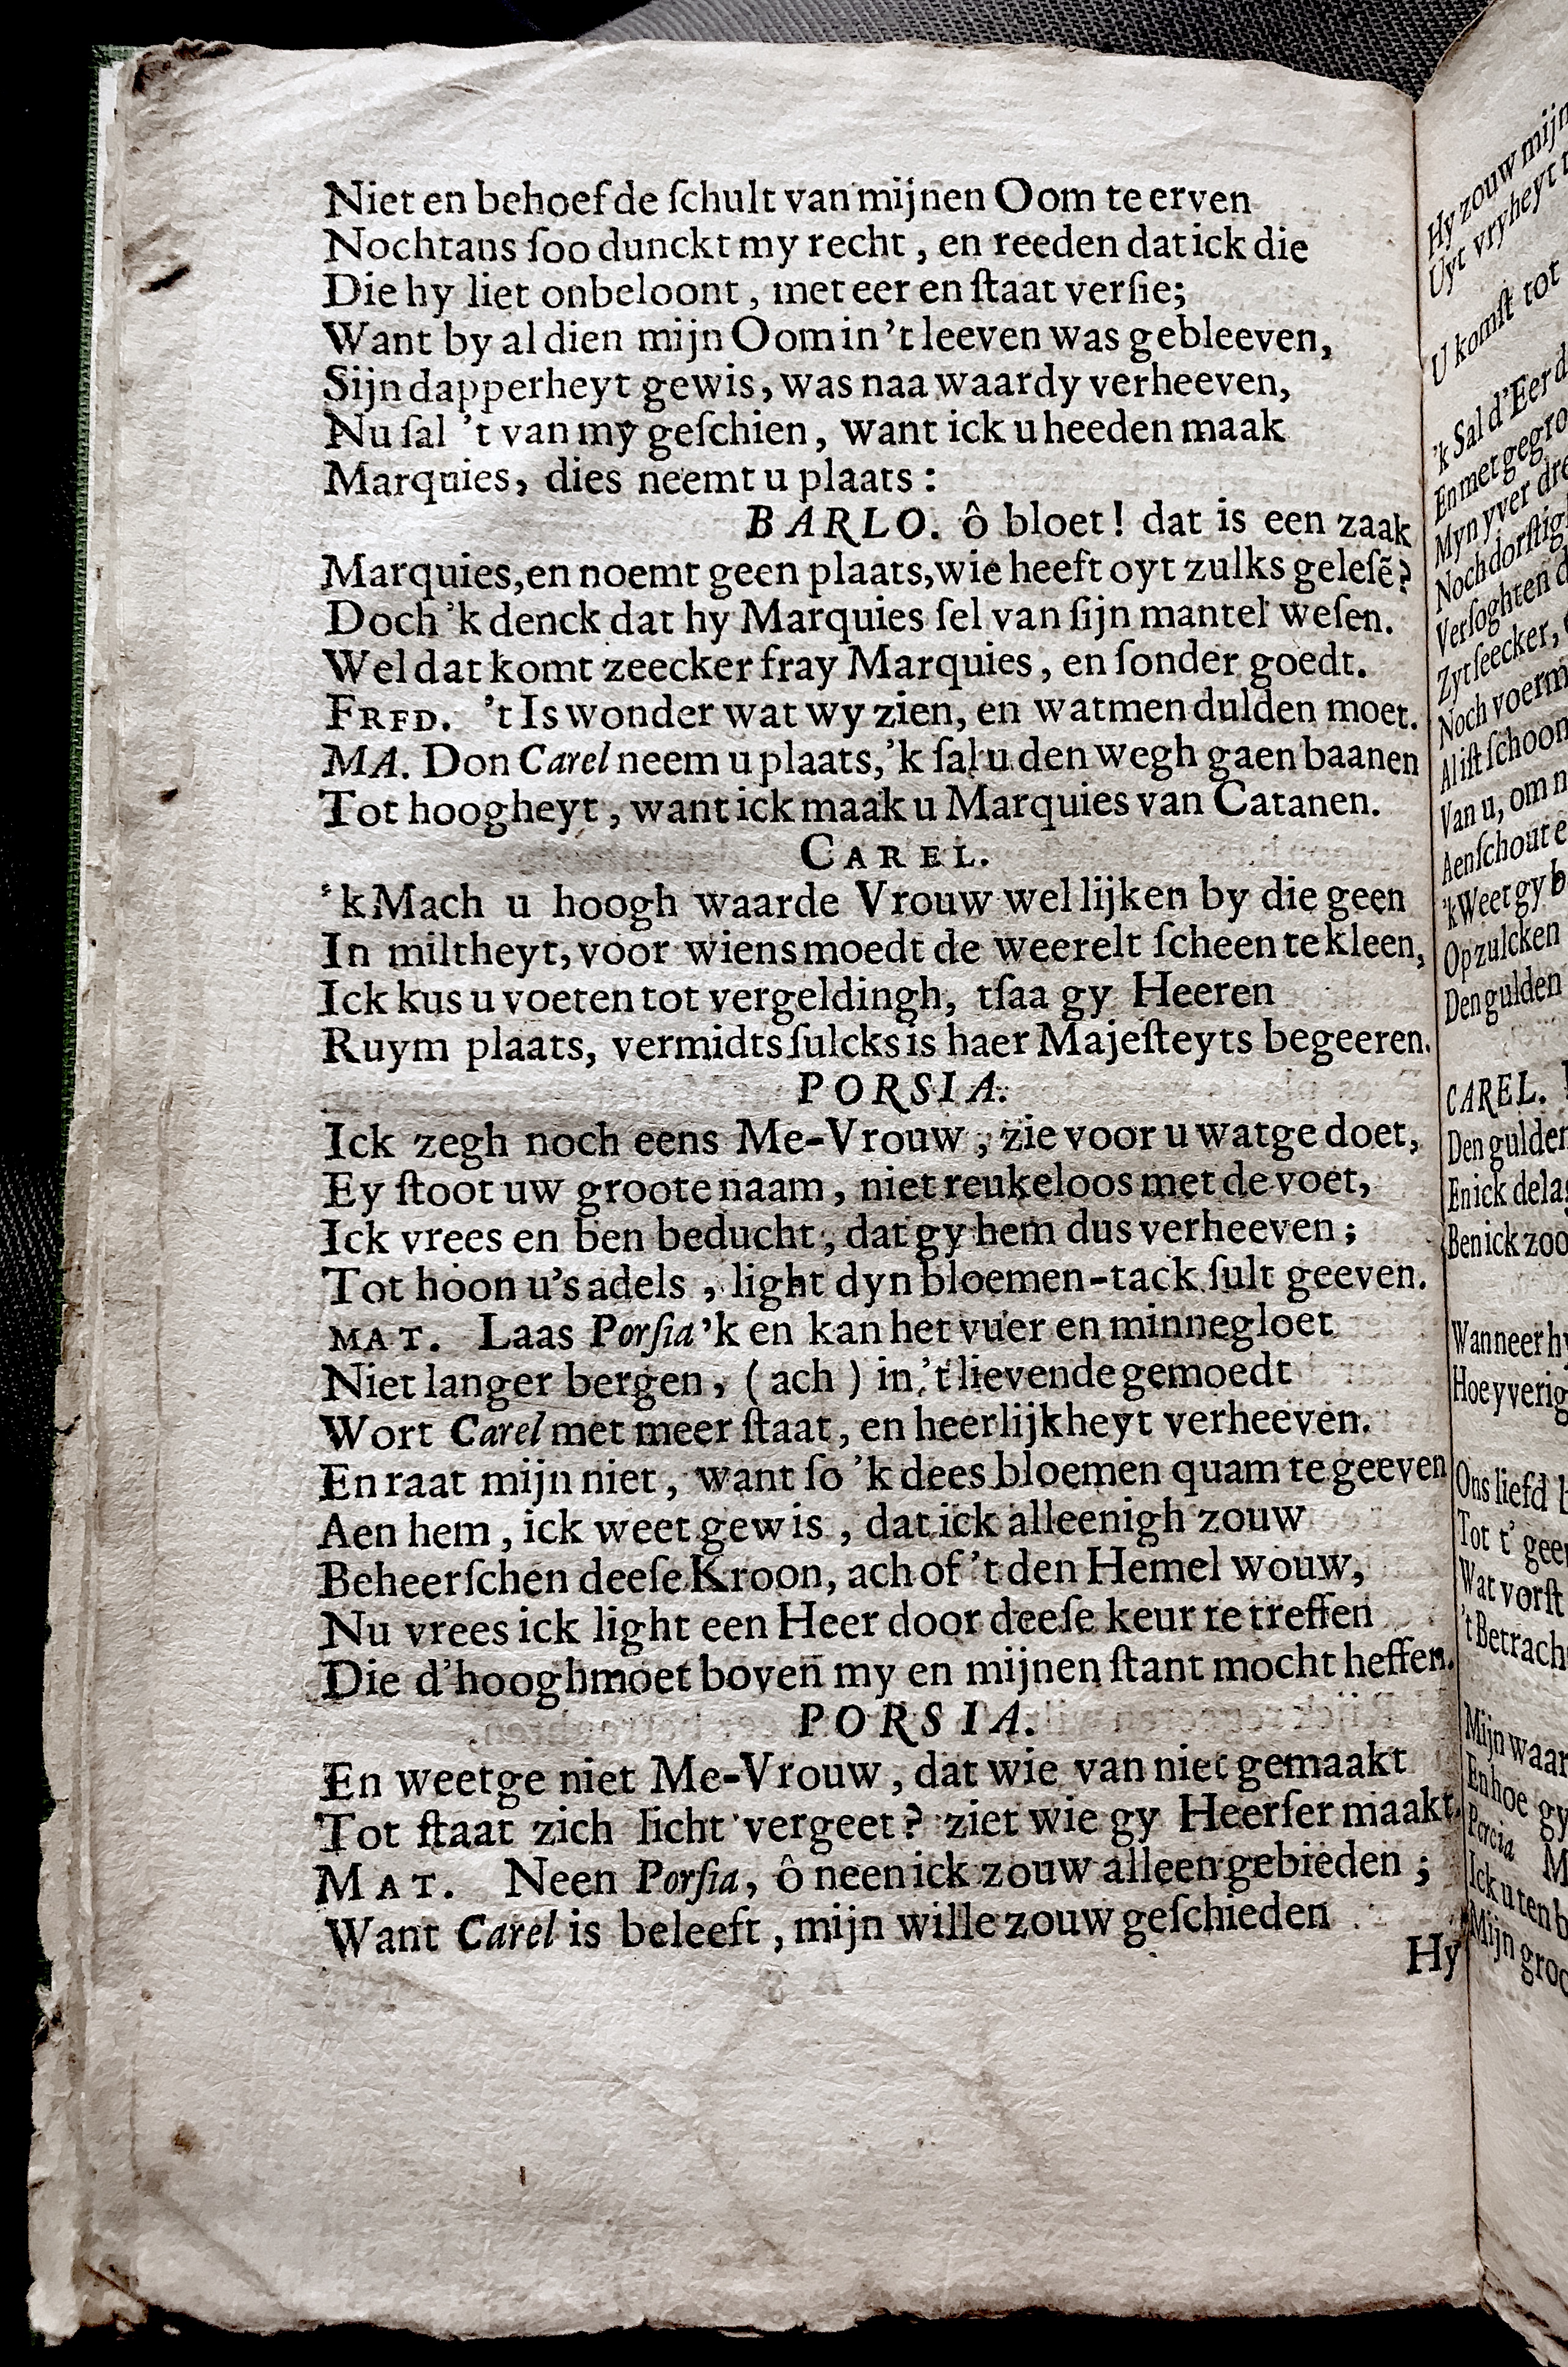 Niet en behoef de ſchult van mijnen Oom te erven
Nochtans ſoo dunckt my recht, en reeden dat ick die
Die hy liet onbeloont, met eer en ſtaat verſie;
Want by al dien mijn Oom in 't leeven was gebleeven,
Sijn dapperheyt gewis, was naa waardy verheeven,
Nu ſal 't van my geſchien, want ick u heeden maak
Marquies, dies neemt u plaats:
BARLO. ô bloet! dat is een zaak
Marquies, en noemt geen plaats, wie heeft oyt zulks geleſẽ?
Doch 'k denck dat hy Marquies ſel van ſijn mantel weſen.
Wel dat komt zeecker fray Marquies, en ſonder goedt.
FRFD. 't Is wonder wat wy zien, en wat men dulden moet.
MA. Don Carel neem u plaats, 'k ſal u den wegh gaen baanen
Tot hoogheyt, want ick maak u Marquies van Catanen.
CAREL.
'k Mach u hoogh waarde Vrouw wel lijken by die geen
In miltheyt, voor wiens moedt de weerelt ſcheen te kleen,
Ick kus u voeten tot vergeldingh, tſaa gy Heeren
Ruym plaats, vermidts ſulcks is haer Majeſteyts begeeren.
PORSIA.
Ick zegh noch eens Me-Vrouw, zie voor u wat ge doet,
Ey ſtoot uw groote naam, niet reukeloos met de voet,
Ick vrees en ben beducht, dat gy hem dus verheeven;
Tot hoon u's adels, light dyn bloemen-tack ſult geeven.
MAT. Laas Porſia 'k en kan het vuer en minnegloet
Niet langer bergen, (ach) in 't lievende gemoedt
Wort Carel met meer ſtaat, en heerlijkheyt verheeven.
En raat mijn niet, want ſo 'k dees bloemen quam te geeven
Aen hem, ick weet gewis, dat ick alleenigh zouw
Beheerſchen deeſe Kroon, ach of 't den Hemel wouw,
Nu vrees ick light een Heer door deeſe keur te treffen
Die d'hooghmoet boven my en mijnen ſtant mocht heffen.
PORSIA.
En weetge niet Me-Vrouw, dat wie van niet gemaakt
Tot ſtaat zich licht vergeet? ziet wie gy Heerſer maakt.
MAT. Neen Porſia, ô neen ick zouw alleen gebieden;
Want Carel is beleeft, mijn wille zouw geſchieden
Hy
Hy zouw mijn
Uyt vryheyt
U komſt tot
'k Sal d'Eer
En met
Myn yver
Verſoghten
Zyt ſeecker,
Noch
Al iſt ſchoon
Van u, om
Aenſchout
'k Weet gy
Op zulcken
Den gulden
CAREL.
Den gulden
En ick
Ben ick zoo
Wanneer
Hoe yverig
Ons liefd
Tot t'
Wat vorſt
't
Mijn
En hoe gy
Ick u ten
Mijn